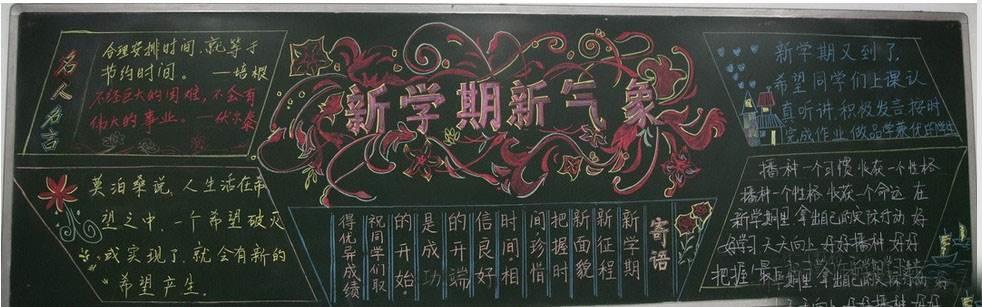 名人名言
合理安排时间,就等于
节约时间。 —培根
不经巨大的困难,不会有
伟大的事业。—伏尔泰
莫泊桑说,人生活在希
望之中,一个希望破灭
或实现了,就会有新的
希望产生.
新学期新气象
寄语
新学期
新征程
新面貌
把握时
间珍惜
时间·相
信良好
的开端
是成功
的开始·
祝同学们取
得优异成绩
新学期又到了,
希望同学们上课认
真听讲,积极发言,按时
完成作业,做品学兼优的学生
播种一个习惯 收获一个性格
播种一个性格 收获一个命运 在
新学期里 拿出自己的实际行动 好
好学习 天天向上 好好播种 好好
把握!